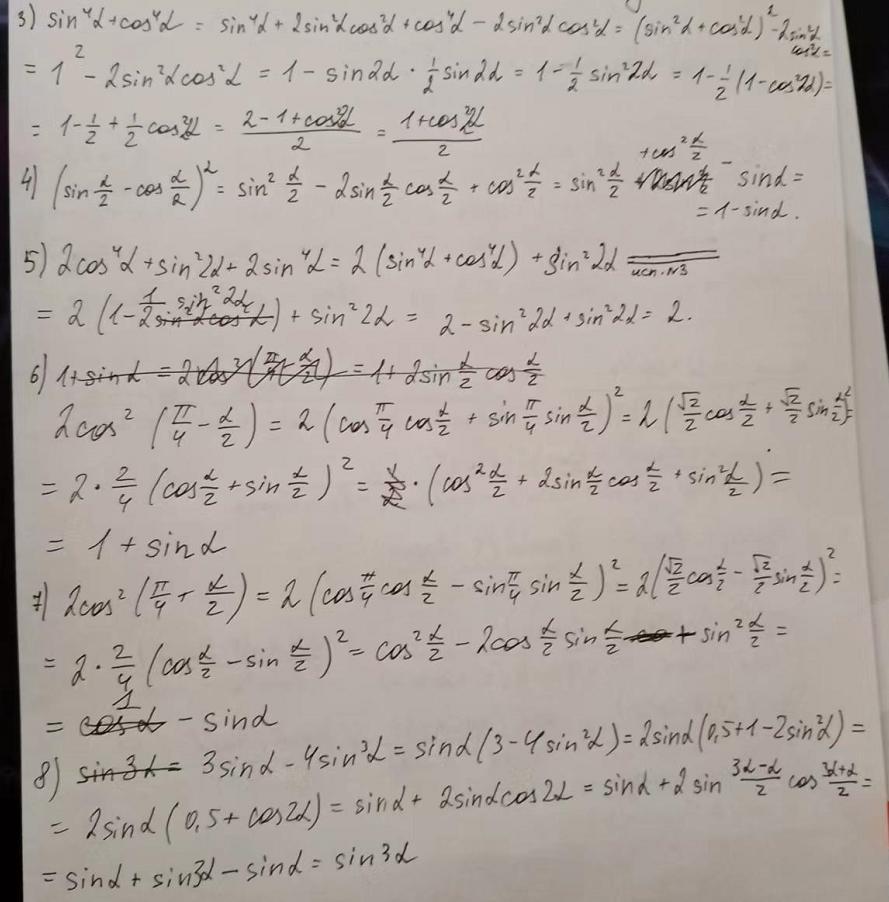 3) sin⁴α+cos⁴α = sin⁴α + 2sin²αcos²α + cos⁴α − 2sin²α cos²α = (sin²α + cos²α)² − 2sin²α cos²α =
= 1² − 2sin²αcos²α = 1 − sin2α · 1/2 sin2α = 1 − 1/2 sin²2α = 1 − 1/2 (1−cos²2α) =
= 1 − 1/2 + 1/2 cos²2α = (2−1+cos²2α)/2 = (1+cos²2α)/2
4) (sin α/2 − cos α/2)² = sin² α/2 − 2sin α/2 cos α/2 + cos² α/2 = sin² α/2 + cos² α/2 − sinα =
= 1−sinα.
5) 2cos⁴α + sin²2α + 2sin⁴α = 2 (sin⁴α + cos⁴α) + sin²2α =
исп. №3
= 2 (1 − 1/2 sin²2α) + sin²2α = 2 − sin²2α + sin²2α = 2.
6) 1+sinα = 2cos²(π/4 − α/2) = 1 + 2sin α/2 cos α/2
2cos² (π/4 − α/2) = 2 (cos π/4 cos α/2 + sin π/4 sin α/2)² = 2 (√2/2 cos α/2 + √2/2 sin α/2)² =
= 2 · 2/4 (cos α/2 + sin α/2)² = · (cos² α/2 + 2sin α/2 cos α/2 + sin² α/2) =
= 1 + sinα
7) 2cos² (π/4 + α/2) = 2 (cos π/4 cos α/2 − sin π/4 sin α/2)² = 2 (√2/2 cos α/2 − √2/2 sin α/2)² =
= 2 · 2/4 (cos α/2 − sin α/2)² = cos² α/2 − 2cos α/2 sin α/2 + sin² α/2 =
= 1 − sinα
8) sin3α = 3sinα − 4sin³α = sinα (3 − 4sin²α) = 2sinα (0,5+1−2sin²α) =
= 2sinα (0,5 + cos2α) = sinα + 2sinαcos2α = sinα + 2 sin (3α−α)/2 cos (3α+α)/2 =
= sinα + sin3α − sinα = sin3α